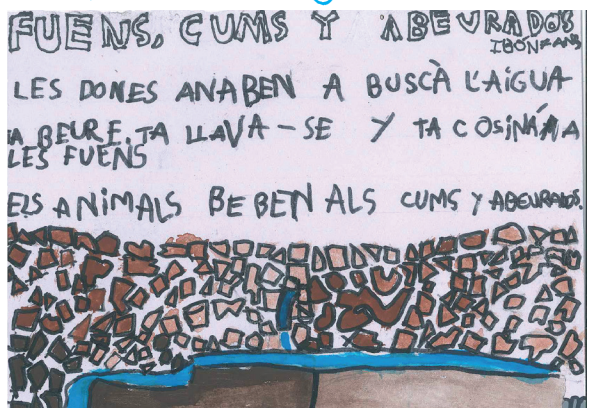 FUENS, CUMS Y ABEURADOS
IBÓN FANS
LES DONES ANABEN A BUSCÀ L'AIGUA
A BEURE, TA LLAVA-SE Y TA COSINÁ A
LES FUENS
ELS ANIMALS BEBEN ALS CUMS Y ABEURADOS.